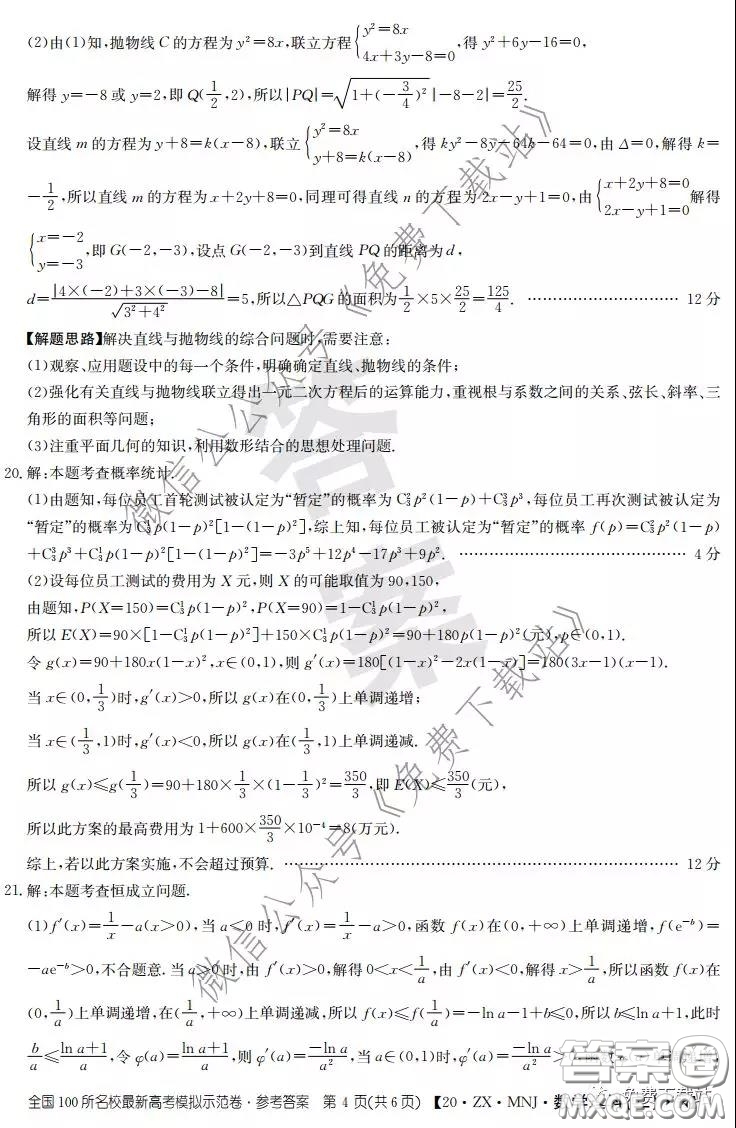 (2)由(1)知,抛物线C的方程为y²=8x,联立方程{y²=8x 4x+3y-8=0,得y²+6y-16=0,
解得y=-8或y=2,即Q(1/2,2),所以|PQ|=√(1+(-3/4)²)|-8-2|=25/2.
设直线m的方程为y+8=k(x-8),联立{y²=8x y+8=k(x-8),得ky²-8y-64k-64=0,由Δ=0,解得k=
-1/2,所以直线m的方程为x+2y+8=0,同理可得直线n的方程为2x-y+1=0,由{x+2y+8=0 2x-y+1=0解得
{x=-2 y=-3,即G(-2,-3),设点G(-2,-3)到直线PQ的距离为d,
d=|4×(-2)+3×(-3)-8|/√(3²+4²)=5,所以△PQG的面积为1/2×5×25/2=125/4. ……………………… 12分
【解题思路】解决直线与抛物线的综合问题时,需要注意:
(1)观察、应用题设中的每一个条件,明确确定直线、抛物线的条件;
(2)强化有关直线与抛物线联立得出一元二次方程后的运算能力,重视根与系数之间的关系、弦长、斜率、三
角形的面积等问题;
(3)注重平面几何的知识,利用数形结合的思想处理问题.
20.解:本题考查概率统计.
(1)由题知,每位员工首轮测试被认定为“暂定”的概率为C₃²p²(1-p)+C₃³p³,每位员工再次测试被认定为
“暂定”的概率为C₃¹p(1-p)²[1-(1-p)²],综上知,每位员工被认定为“暂定”的概率f(p)=C₃²p²(1-p)
+C₃³p³+C₃¹p(1-p)²[1-(1-p)²]=-3p⁵+12p⁴-17p³+9p². ……………………… 4分
(2)设每位员工测试的费用为X元,则X的可能取值为90,150,
由题知,P(X=150)=C₃¹p(1-p)²,P(X=90)=1-C₃¹p(1-p)²,
所以E(X)=90×[1-C₃¹p(1-p)²]+150×C₃¹p(1-p)²=90+180p(1-p)²(元),p∈(0,1).
令g(x)=90+180x(1-x)²,x∈(0,1),则g′(x)=180[(1-x)²-2x(1-x)]=180(3x-1)(x-1).
当x∈(0,1/3)时,g′(x)>0,所以g(x)在(0,1/3)上单调递增;
当x∈(1/3,1)时,g′(x)<0,所以g(x)在(1/3,1)上单调递减.
所以g(x)≤g(1/3)=90+180×1/3×(1-1/3)²=350/3,即E(X)≤350/3(元),
所以此方案的最高费用为1+600×350/3×10⁻⁴=8(万元).
综上,若以此方案实施,不会超过预算. ……………………… 12分
21.解:本题考查恒成立问题.
(1)f′(x)=1/x-a(x>0),当a<0时,f′(x)=1/x-a>0,函数f(x)在(0,+∞)上单调递增,f(e⁻ᵇ)=
-ae⁻ᵇ>0,不合题意.当a>0时,由f′(x)>0,解得0<x<1/a,由f′(x)<0,解得x>1/a,所以函数f(x)在
(0,1/a)上单调递增,在(1/a,+∞)上单调递减,所以f(x)≤f(1/a)=-ln a-1+b≤0,所以b≤ln a+1,此时
b/a≤(ln a+1)/a,令φ(a)=(ln a+1)/a,则φ′(a)=-ln a/a²,当a∈(0,1)时,φ′(a)=-ln a/a²>
全国100所名校最新高考模拟示范卷·参考答案 第4页(共6页) 【20·ZX·MNJ·数学
答案
微信公众号《免费下载站》
微信公众号《免费下载站》
答案圈
MXQE.COM
免费下载站